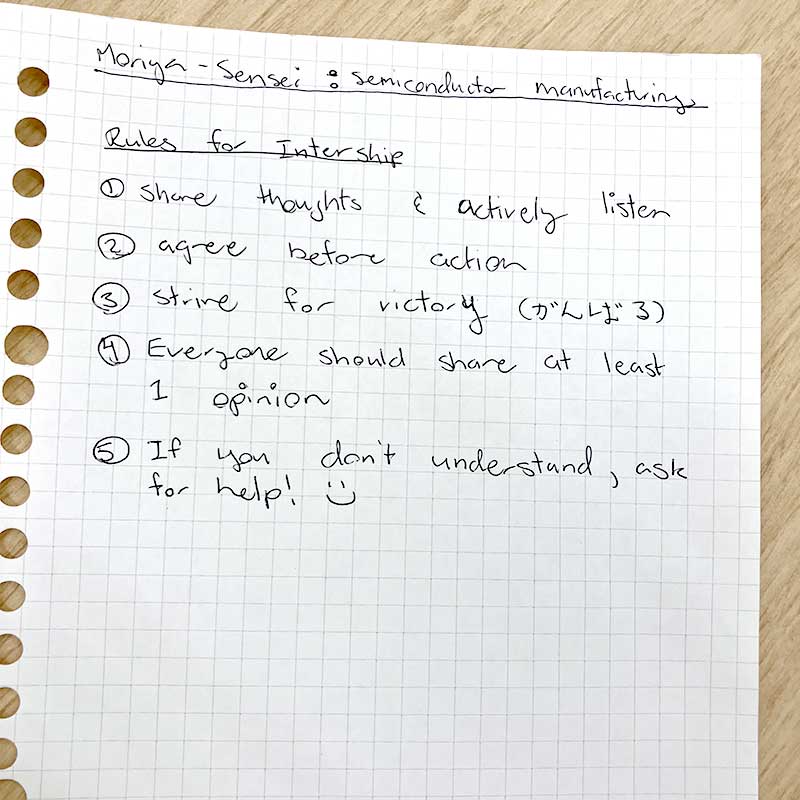 Moriya-Sensei : semiconductor manufacturing
Rules for Intership
① share thoughts & actively listen
② agree before action
③ strive for victory (がんばる)
④ Everyone should share at least
1 opinion
⑤ If you don't understand, ask
for help! :)